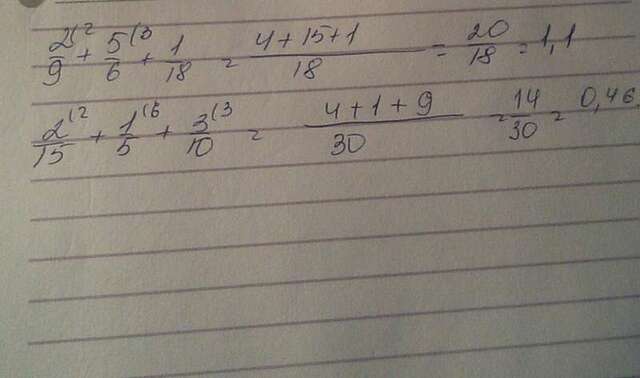 2⁽²/9 + 5⁽³/6 + 1/18 = 4+15+1/18 = 20/18 = 1,1
2⁽²/15 + 1⁽⁶/5 + 3⁽³/10 = 4+1+9/30 = 14/30 = 0,46